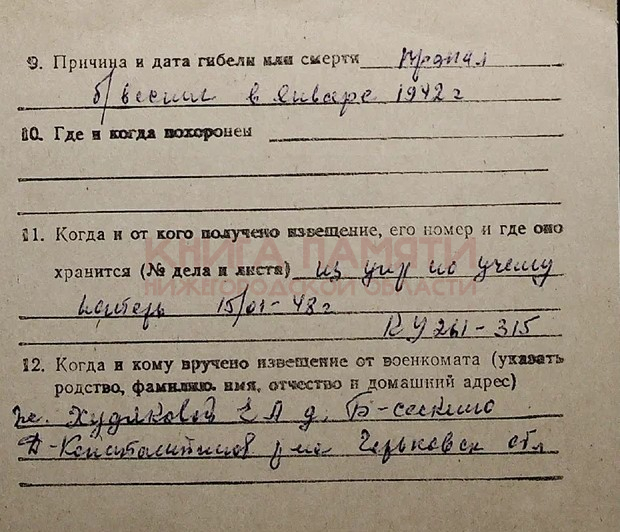 9. Причина и дата гибели или смерти пропал
б/вести в январе 1942 г
10. Где и когда похоронен
11. Когда и от кого получено извещение, его номер и где оно
КНИГА ПАМЯТИ
хранится (№ дела и листа) из упр по учету
НИЖЕГОРОДСКОЙ ОБЛАСТИ
потерь 15/01-48 г
КУ 261-315
12. Когда и кому вручено извещение от военкомата (указать
родство, фамилию, имя, отчество и домашний адрес)
Худяковой Е А д. Б-
Д-Константинов р-на Горьковск обл